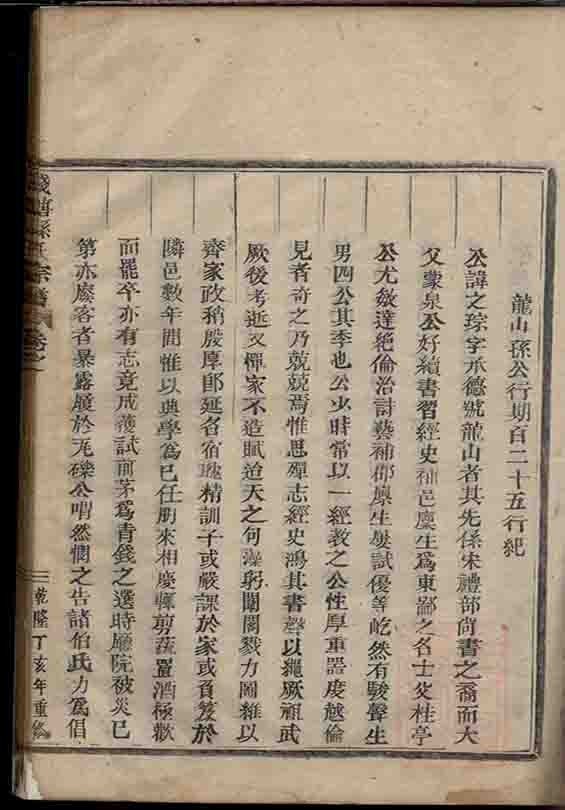 龍山孫公行期百二十五行紀
公諱之琮字承德號龍山者其先係宋禮部尚書之裔而大
父蒙泉公好績書習經史補邑廩生爲東鄙之名士父桂亭
公尤敏達絕倫治詩藝補郡廩生屢試優等屹然有駿聲生
男四公其季也公少時常以一經教之公性厚重器度越倫
見者奇之乃兢兢焉惟思殫志經史鴻其書聲以繩厥祖武
厥後考逝又憚家不造賦迨天之句藻躬闤閣戮力圖維以
齊家政稍殷厚郎延名宿瑰精訓子或嚴課於家或負笈於
隣邑數年間惟以典學爲巳任朋來相慶輒剪蔬置酒極歡
而罷卒亦有志竟成護試前茅爲青錢之選時廳院被災巳
第亦廢客者暴露屐於尢礫公喟然憫之告諸伯氏力爲倡
孫氏宗譜 卷之一
乾隆丁亥年重修